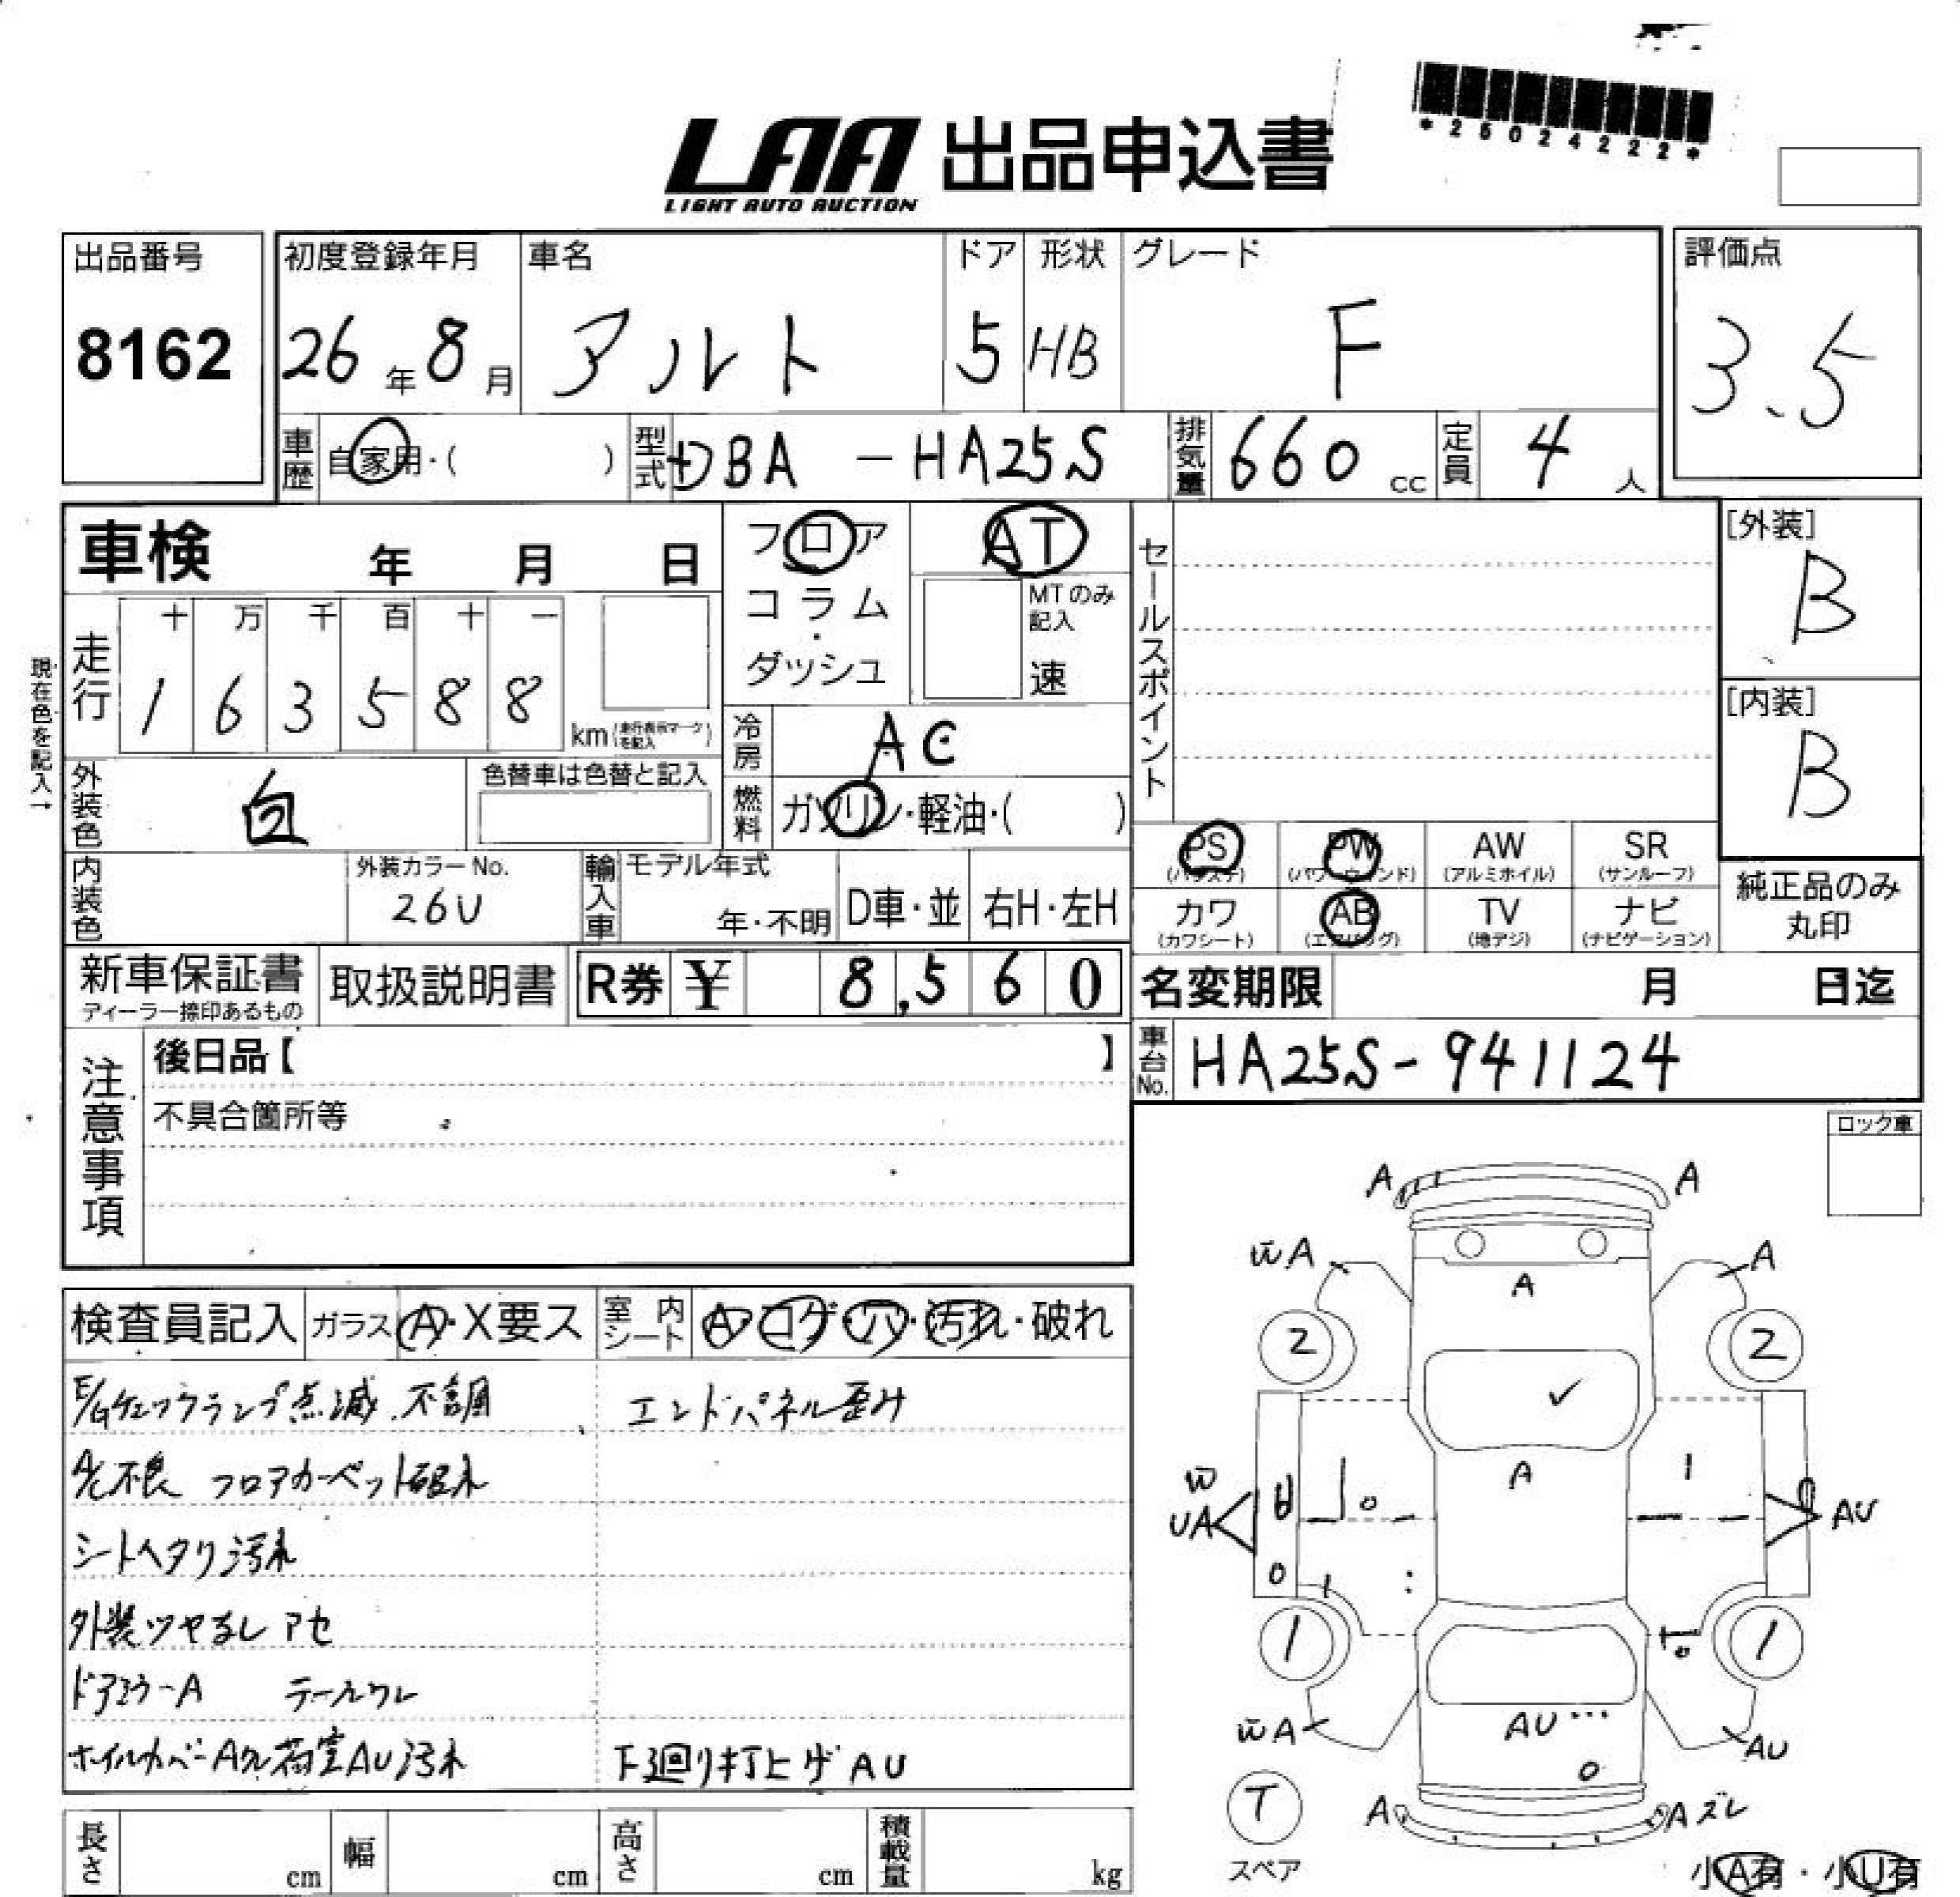 *25024222*
LAA 出品申込書
LIGHT AUTO AUCTION
出品番号
8162
初度登録年月
26年8月
車名
アルト
ドア
5
形状
HB
グレード
F
評価点
3.5
車歴
自家用・( )
型式
DBA - HA25S
排気量
660 cc
定員
4人
車検 年 月 日
フロア
コラム
・
ダッシュ
AT
MTのみ記入
速
セールスポイント
[外装]
B
[内装]
B
現在色を記入→
走行
十 万 千 百 十 一
1 6 3 5 8 8
km (走行表示マークを記入)
冷房
AC
燃料
ガソリン・軽油・( )
外装色
白
色替車は色替と記入
内装色
外装カラーNo.
26U
輸入車
モデル年式
年・不明
D車・並
右H・左H
PS
(パワステ)
PW
(パワーウィンド)
AW
(アルミホイル)
SR
(サンルーフ)
カワ
(カワシート)
AB
(エアバッグ)
TV
(地デジ)
ナビ
(ナビゲーション)
純正品のみ
丸印
新車保証書
ディーラー捺印あるもの
取扱説明書
R券 ¥ 8,560
名変期限 月 日迄
車台No.
HA25S-941124
注意事項
後日品【 】
不具合箇所等
ロック車
検査員記入
ガラス
A・X要ス
室内シート
A・コゲ・穴・汚れ・破れ
E/Gチェックランプ点滅、不調
エンドパネル歪み
A/C不良 フロアカーペット破れ
シートヘタリ汚れ
外装ツヤなし アセ
ドアミラーA テールワレ
ホイルカバーAワレ 荷室AU汚れ
下廻り打ヒゲAU
A A
W̄A A
A
2 2
A
W̄
UA AU
1 1
W̄A AU AU
T
スペア
A Aズレ
小A有・小U有
長さ cm
幅 cm
高さ cm
積載量 kg